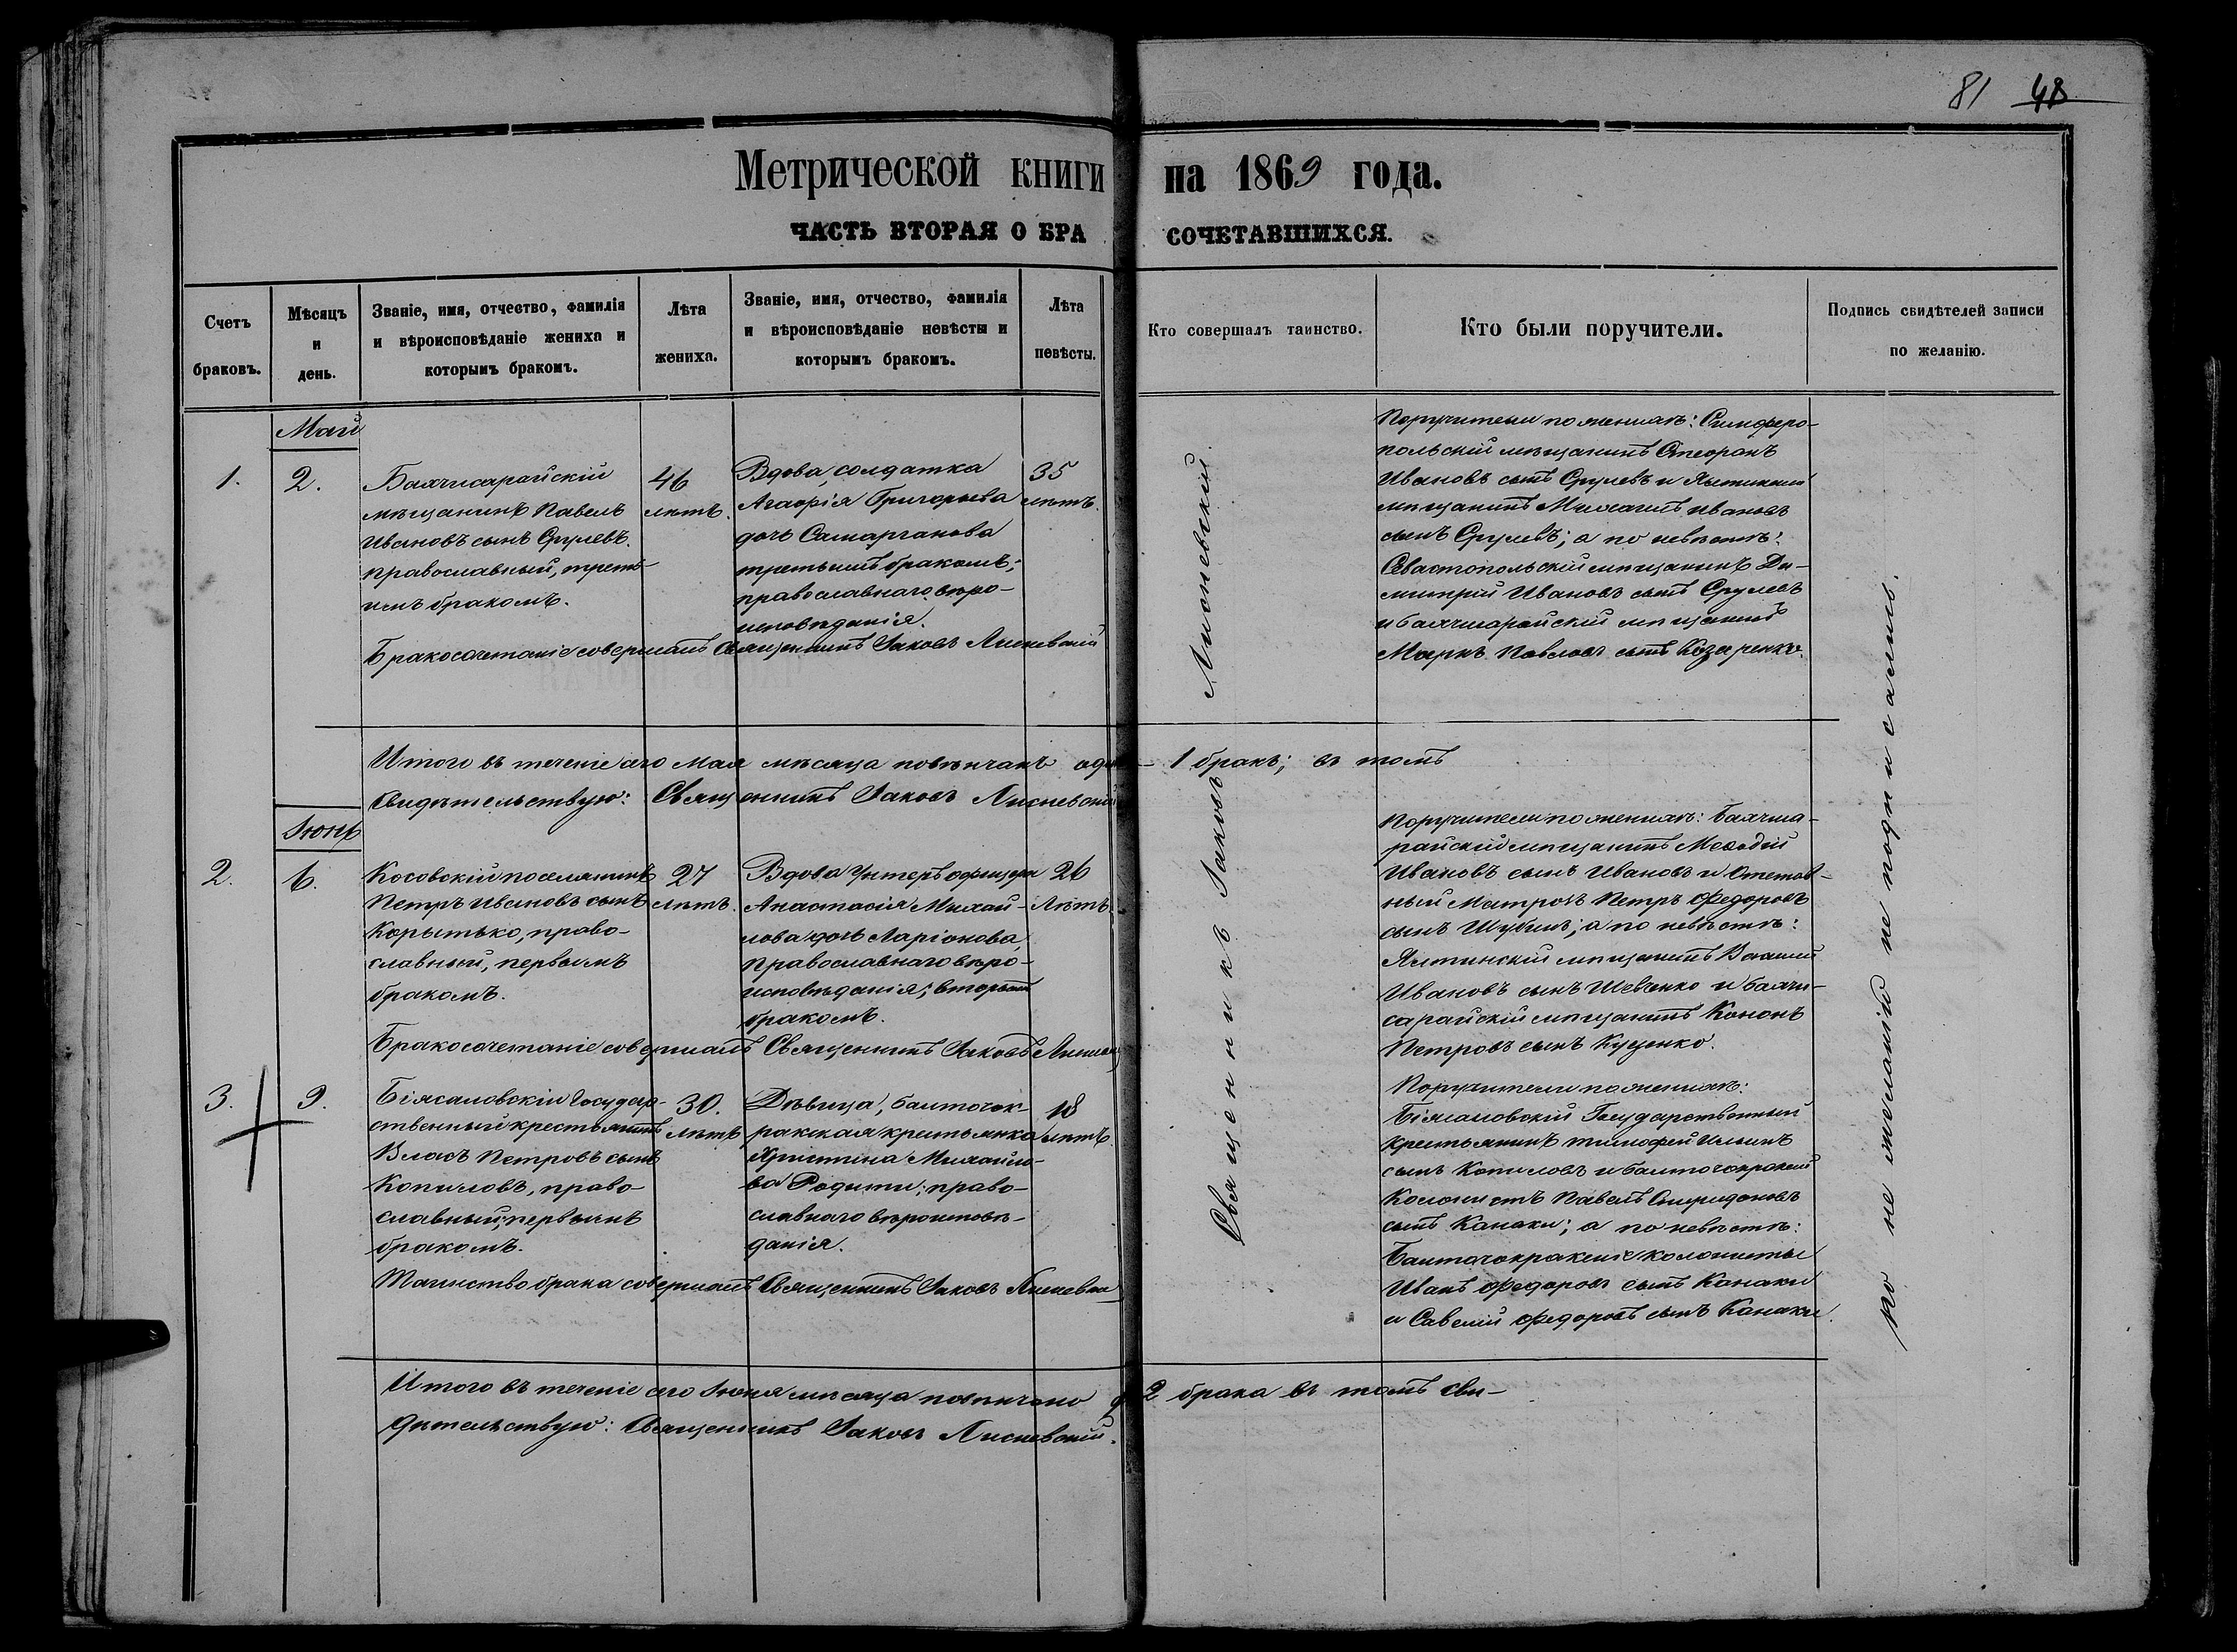 81 48
Метрической книги на 1869 года.
ЧАСТЬ ВТОРАЯ О БРАКОСОЧЕТАВШИХСЯ.
Счетъ браковъ.
Мѣсяцъ и день.
Званіе, имя, отчество, фамилія
и вѣроисповѣданіе жениха и
которымъ бракомъ.
Лѣта
жениха.
Званіе, имя, отчество, фамилія
и вѣроисповѣданіе невѣсты и
которымъ бракомъ.
Лѣта
невѣсты.
Кто совершалъ таинство.
Кто были поручители.
Подпись свидѣтелей записи
по желанію.
Май
1.
2.
Бахчисарайскій
мѣщанинъ Павелъ
Ивановъ сынъ Срулевъ.
православный, треть-
имъ бракомъ.
46
лѣтъ.
Вдова, солдатка
Агафія Григорьева
дочь
третьимъ бракомъ;
православнаго вѣро-
исповѣданія.
35
лѣтъ.
Бракосочетаніе совершалъ Священникъ Іаковъ Лисневскій
Поручители по женихѣ: Симферо-
польскій мѣщанинъ Стефанъ
Ивановъ сынъ Срулевъ и Ялтинскій
мѣщанинъ Михаилъ Ивановъ
сынъ Срулевъ; а по невѣстѣ:
Севастопольскій мѣщанинъ Ди-
митрій Ивановъ сынъ Срулевъ
и бахчисарайскій мѣщанинъ
Маркъ Павловъ сынъ Козаренко.
Итого въ теченіе сего Мая мѣсяца повѣнчанъ 1 бракъ; въ томъ
Свидѣтельствую: Священникъ Іаковъ Лисневскій
Іюнь
2.
6.
Косовскій поселянинъ
Петръ Ивановъ сынъ
Корытько, право-
славный, первымъ
бракомъ.
27
лѣтъ.
Вдова Унтеръ офицера
Анастасія Михай-
лова дочь Ларіонова,
православнаго вѣро-
исповѣданія; вторымъ
бракомъ.
26
Лѣтъ.
Бракосочетаніе совершалъ Священникъ Іаковъ
Поручители по женихѣ: Бахчиса-
райскій мѣщанинъ Мефодій
Ивановъ сынъ Ивановъ и Отстав-
ный Матросъ Петръ Федоровъ
сынъ Шубинъ; а по невѣстѣ:
Ялтинскій мѣщанинъ Василій
Ивановъ сынъ Шевченко и бахчи-
сарайскій мѣщанинъ Кононъ
Петровъ сынъ Куценко.
3.
9.
Біясаловскій Государ-
ственный крестьянинъ
Власъ Петровъ сынъ
Копиловъ, право-
славный, первымъ
бракомъ.
30.
лѣтъ
Дѣвица,
крестьянка
Христина Михайло-
ва Родити; право-
славнаго вѣроисповѣ-
данія.
18
лѣтъ.
Таинство брака совершалъ Священникъ Іаковъ
Поручители по женихѣ:
Біясаловскій Государственный
крестьянинъ Тимофей Ильинъ
сынъ Копиловъ и
Колонистъ Павелъ Спиридоновъ
сынъ Канаки; а по невѣстѣ:
колонисты
Иванъ Федоровъ сынъ Канаки
и Савелій Федоровъ сынъ Канаки.
Итого въ теченіе сего Іюня мѣсяца повѣнчано 2 брака въ томъ сви-
дѣтельствую: Священникъ Іаковъ Лисневскій.
Священникъ Іаковъ Лисневскій.
по не желанію не подписались.